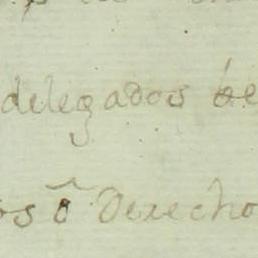 delegados be
os ô Derecho